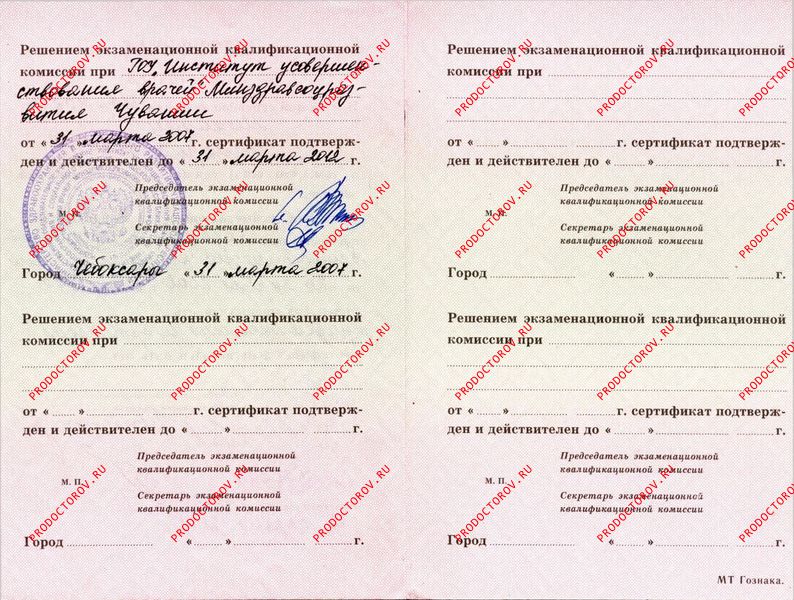 Решением экзаменационной квалификационной
комиссии при ГОУ, Институт усовершен-
ствования врачей Минздравсоцраз-
вития Чувашии
от «31» марта 2007 г. сертификат подтверж-
ден и действителен до «31» марта 2012 г.
Председатель экзаменационной
квалификационной комиссии
М. П.
Секретарь экзаменационной
квалификационной комиссии
Город Чебоксары «31» марта 2007 г.
Решением экзаменационной квалификационной
комиссии при
от «      »      г. сертификат подтверж-
ден и действителен до «      »      г.
Председатель экзаменационной
квалификационной комиссии
М. П.
Секретарь экзаменационной
квалификационной комиссии
Город      «      »      г.
Решением экзаменационной квалификационной
комиссии при
от «      »      г. сертификат подтверж-
ден и действителен до «      »      г.
Председатель экзаменационной
квалификационной комиссии
М. П.
Секретарь экзаменационной
квалификационной комиссии
Город      «      »      г.
Решением экзаменационной квалификационной
комиссии при
от «      »      г. сертификат подтверж-
ден и действителен до «      »      г.
Председатель экзаменационной
квалификационной комиссии
М. П.
Секретарь экзаменационной
квалификационной комиссии
Город      «      »      г.
МТ Гознака.
PRODOCTOROV.RU